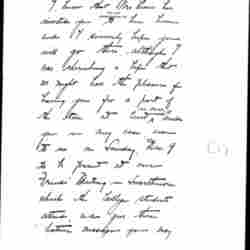 I know that Mrs Evans has
invited you to her home
and I sincerely hope you
will go there, although I
was cherishing a hope that
we might have the pleasure of
having you for a part of
the time at
you on may
to us on Sunday, Nov 9
to be present at our
Friends' Meeting in Swarthmore
which the College students
attend and give them
whatever messages you may